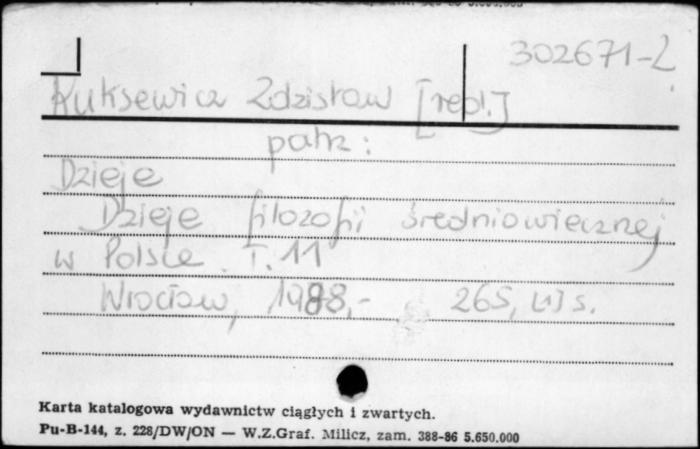 302671-L
Kuksewicz Zdzisław [red.]
patrz:
Dzieje
Dzieje filozofii średniowiecznej
w Polsce. T. 11
Wrocław, 1988,- 265, [1] s.
Karta katalogowa wydawnictw ciągłych i zwartych.
Pu-B-144, z. 228/DW/ON — W.Z.Graf. Milicz, zam. 388-86 5.650.000